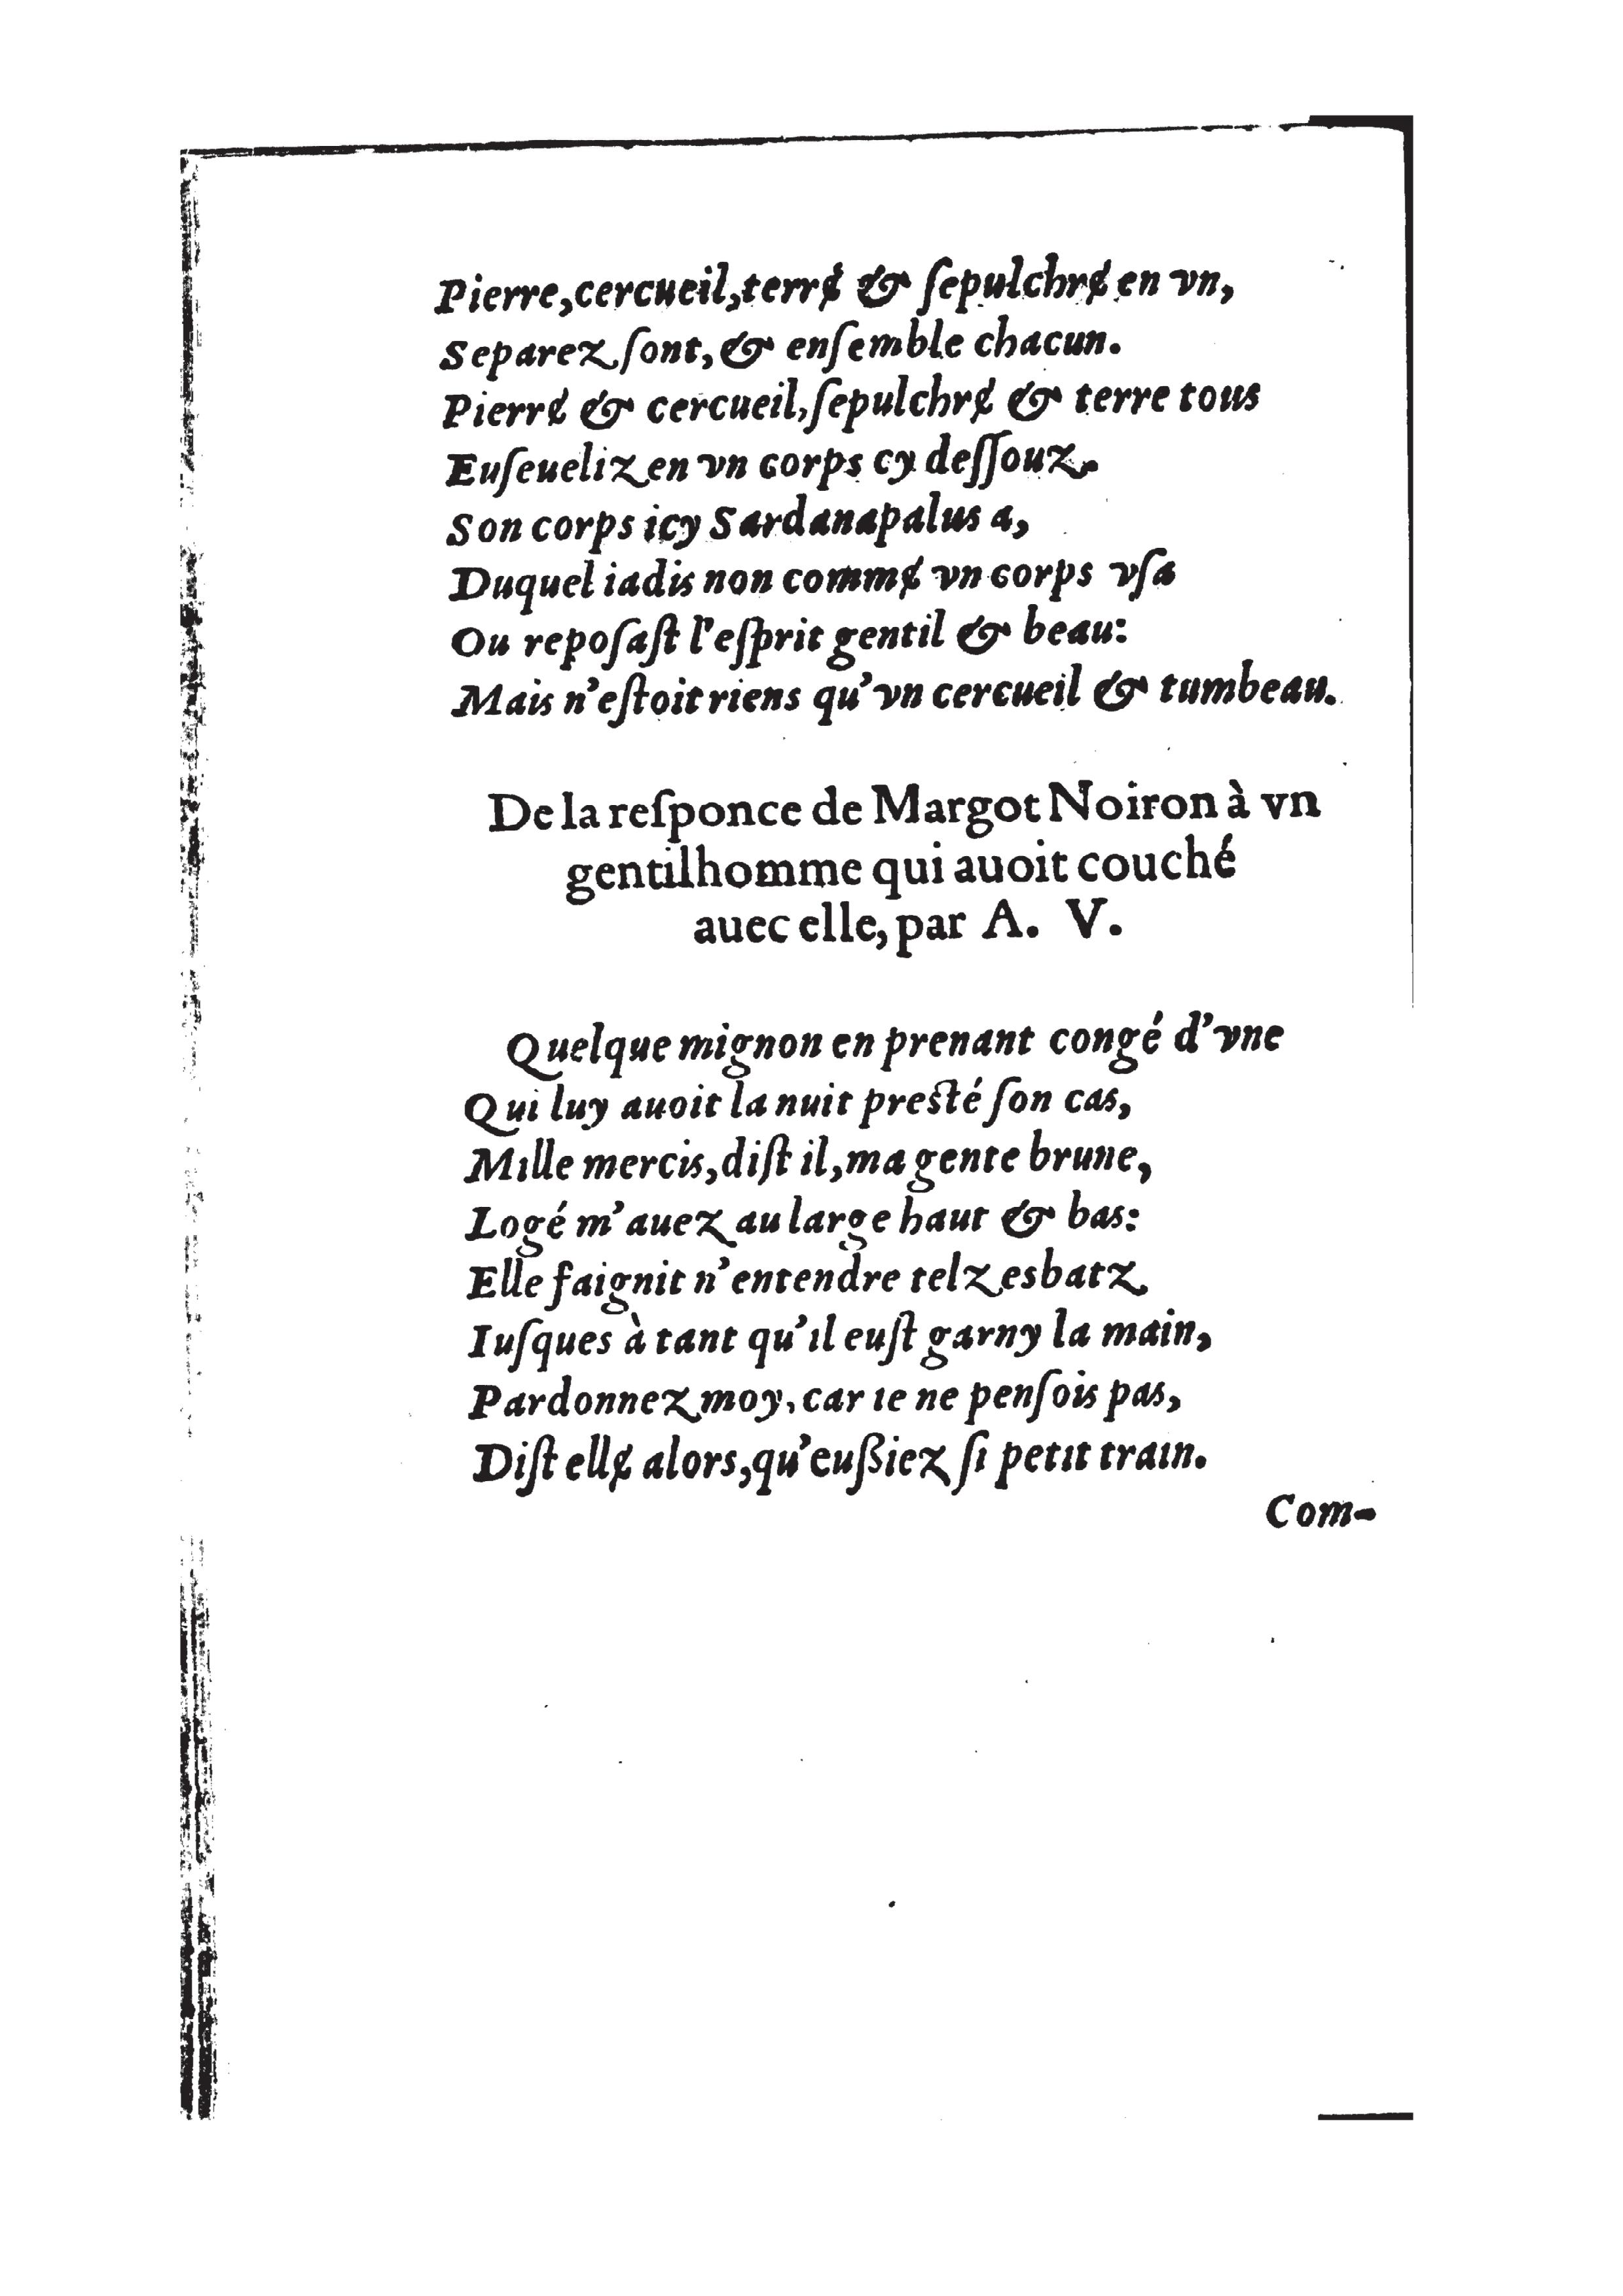 Pierre,cercueil,terrɇ & ſepulchrɇ en vn,
Separez ſont, & enſemble chacun.
Pierrɇ & cercueil, ſepulchrɇ & terre tous
Euſeueliz en vn corps cy deſſouz.
Son corps icy Sardanapalus a,
Duquel iadis non commɇ vn corps vſa
Ou repoſaſt l'eſprit gentil & beau:
Mais n'eſtoit riens qu'vn cercueil & tumbeau.
De la reſponce de Margot Noiron à vn
gentilhomme qui auoit couché
auec elle, par A. V.
Quelque mignon en prenant congé d'vne
Qui luy auoit la nuit presté ſon cas,
Mille mercis, diſt il, ma gente brune,
Logé m'auez au large haut & bas:
Elle faignit n'entendre telz esbatz
Iuſques à tant qu'il euſt garny la main,
Pardonnez moy, car ie ne penſois pas,
Diſt ellɇ alors, qu'eußiez ſi petit train.
Com-